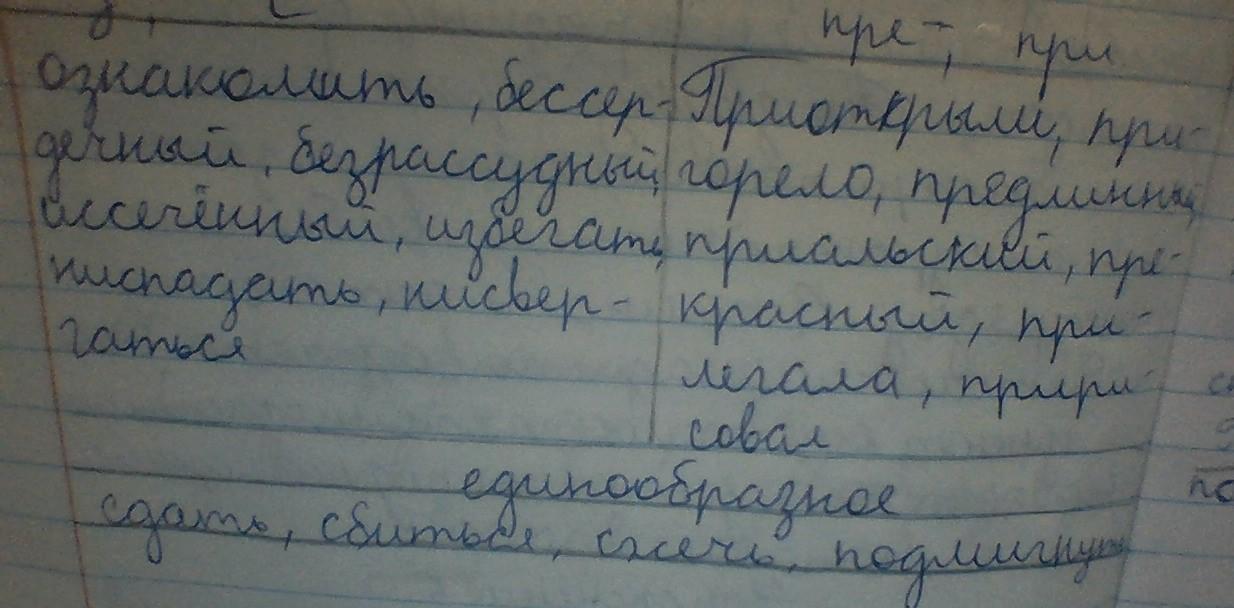 з, с
пре-, при
ознакомить, бессер-
дечный, безрассудный,
иссечённый, избегать,
ниспадать, нисвер-
гаться
Приоткрыли, при-
горело, предлинный,
приальский, пре-
красный, при-
легала, прири-
совал
единообразное
сдать, сбиться, сжечь, подмигнуть